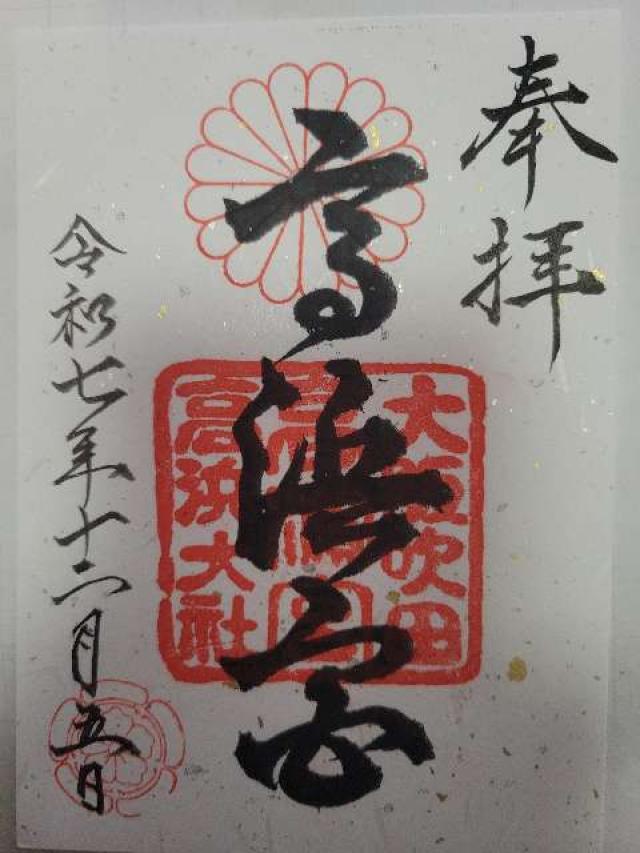 奉拝
大阪吹田
高浜宮
高浜大社
令和七年十二月五日